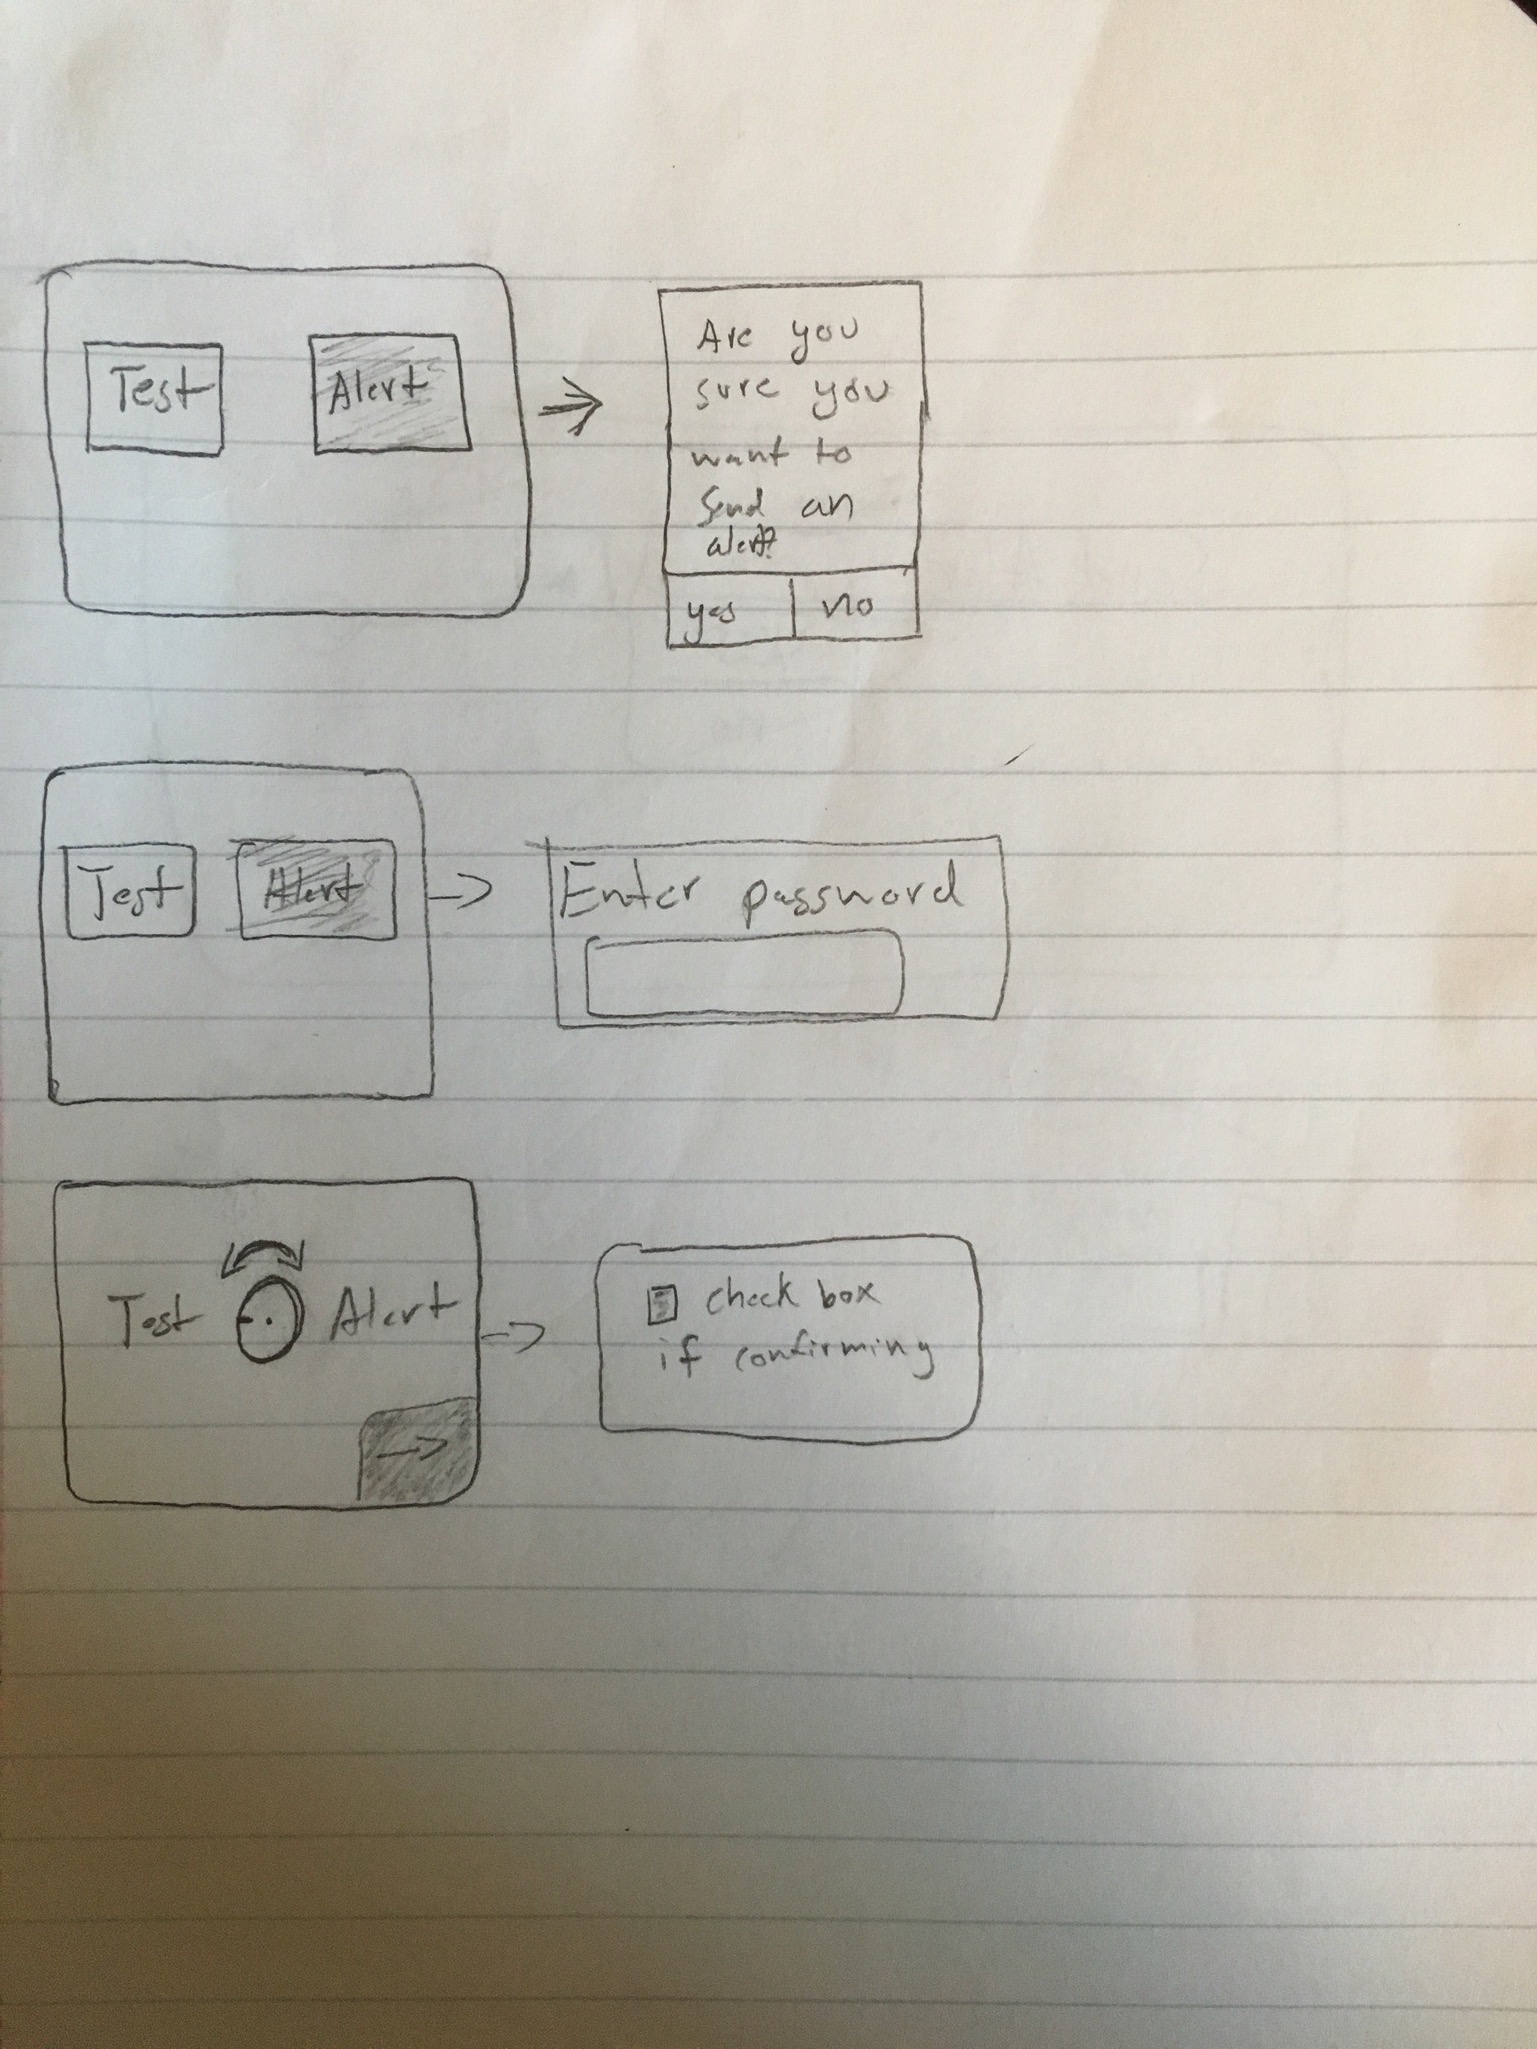 Test
Alert
Are you
sure you
want to
Send an
alert?
yes
no
Test
Alert
Enter password
Test
Alert
check box
if confirming